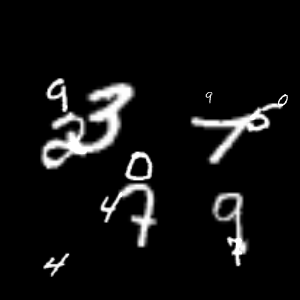 9 23
9 7 0
0
4 7 9
7
4